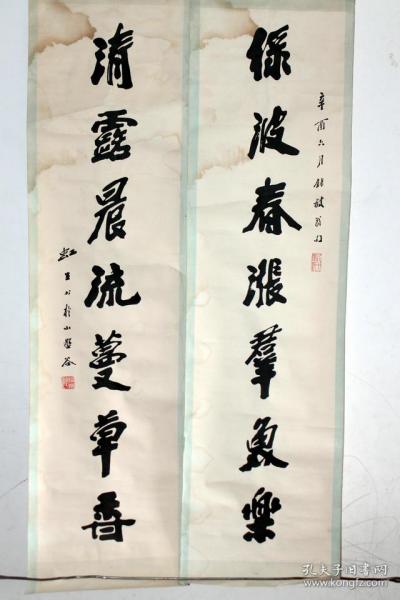 緑波春漲羣魚樂
辛酉六月
清露晨流蔓草香
虹生
孔夫子旧书网
www.kongfz.com